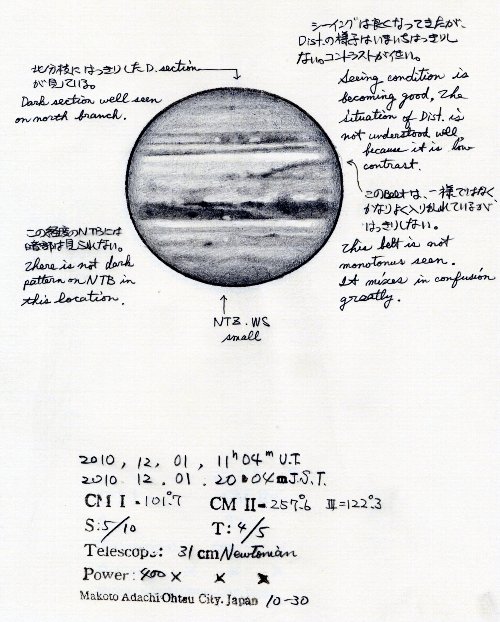 シーイングは良くなってきたが、
Dist.の様子はいまいちはっきりし
ない。コントラストが低い。
Seeing condition is
becoming good, The
situation of Dist. is
not understood well
because it is low
contrast.
北分枝にはっきりしたD.section
が見ている。
Dark section well seen
on north branch.
このBeltは、一様ではなく
かなりよく入り乱れているが
はっきりしない。
This belt is not
monotonus seen.
It mixes in confusion
greatly.
この経度のNTBには
暗部は見られない。
There is not dark
pattern on NTB in
this location.
NTB.WS
small
2010, 12, 01, 11h 04m U.T.
2010 12. 01. 20h 04m J.S.T.
CM I = 101°.7 CM II = 257°.6 III = 122°.3
S: 5/10 T: 4/5
Telescope: 31 cm/Newtonian
Power: 400 × × ×
Makoto Adachi Ohtsu City. Japan 10-30